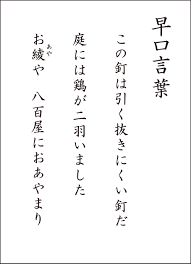 早口言葉
この釘は引く抜きにくい釘だ
庭には鶏が二羽いました
お綾や　八百屋におあやまり
あや